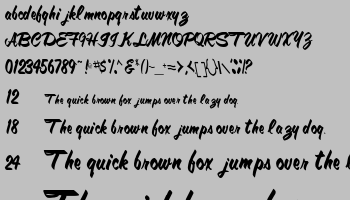 abcdefghijklmnopqrstuvwxyz
ABCDEFGHIJKLMNOPQRSTUVWXYZ
0123456789
12 The quick brown fox jumps over the lazy dog.
18 The quick brown fox jumps over the lazy dog.
24 The quick brown fox jumps over the l